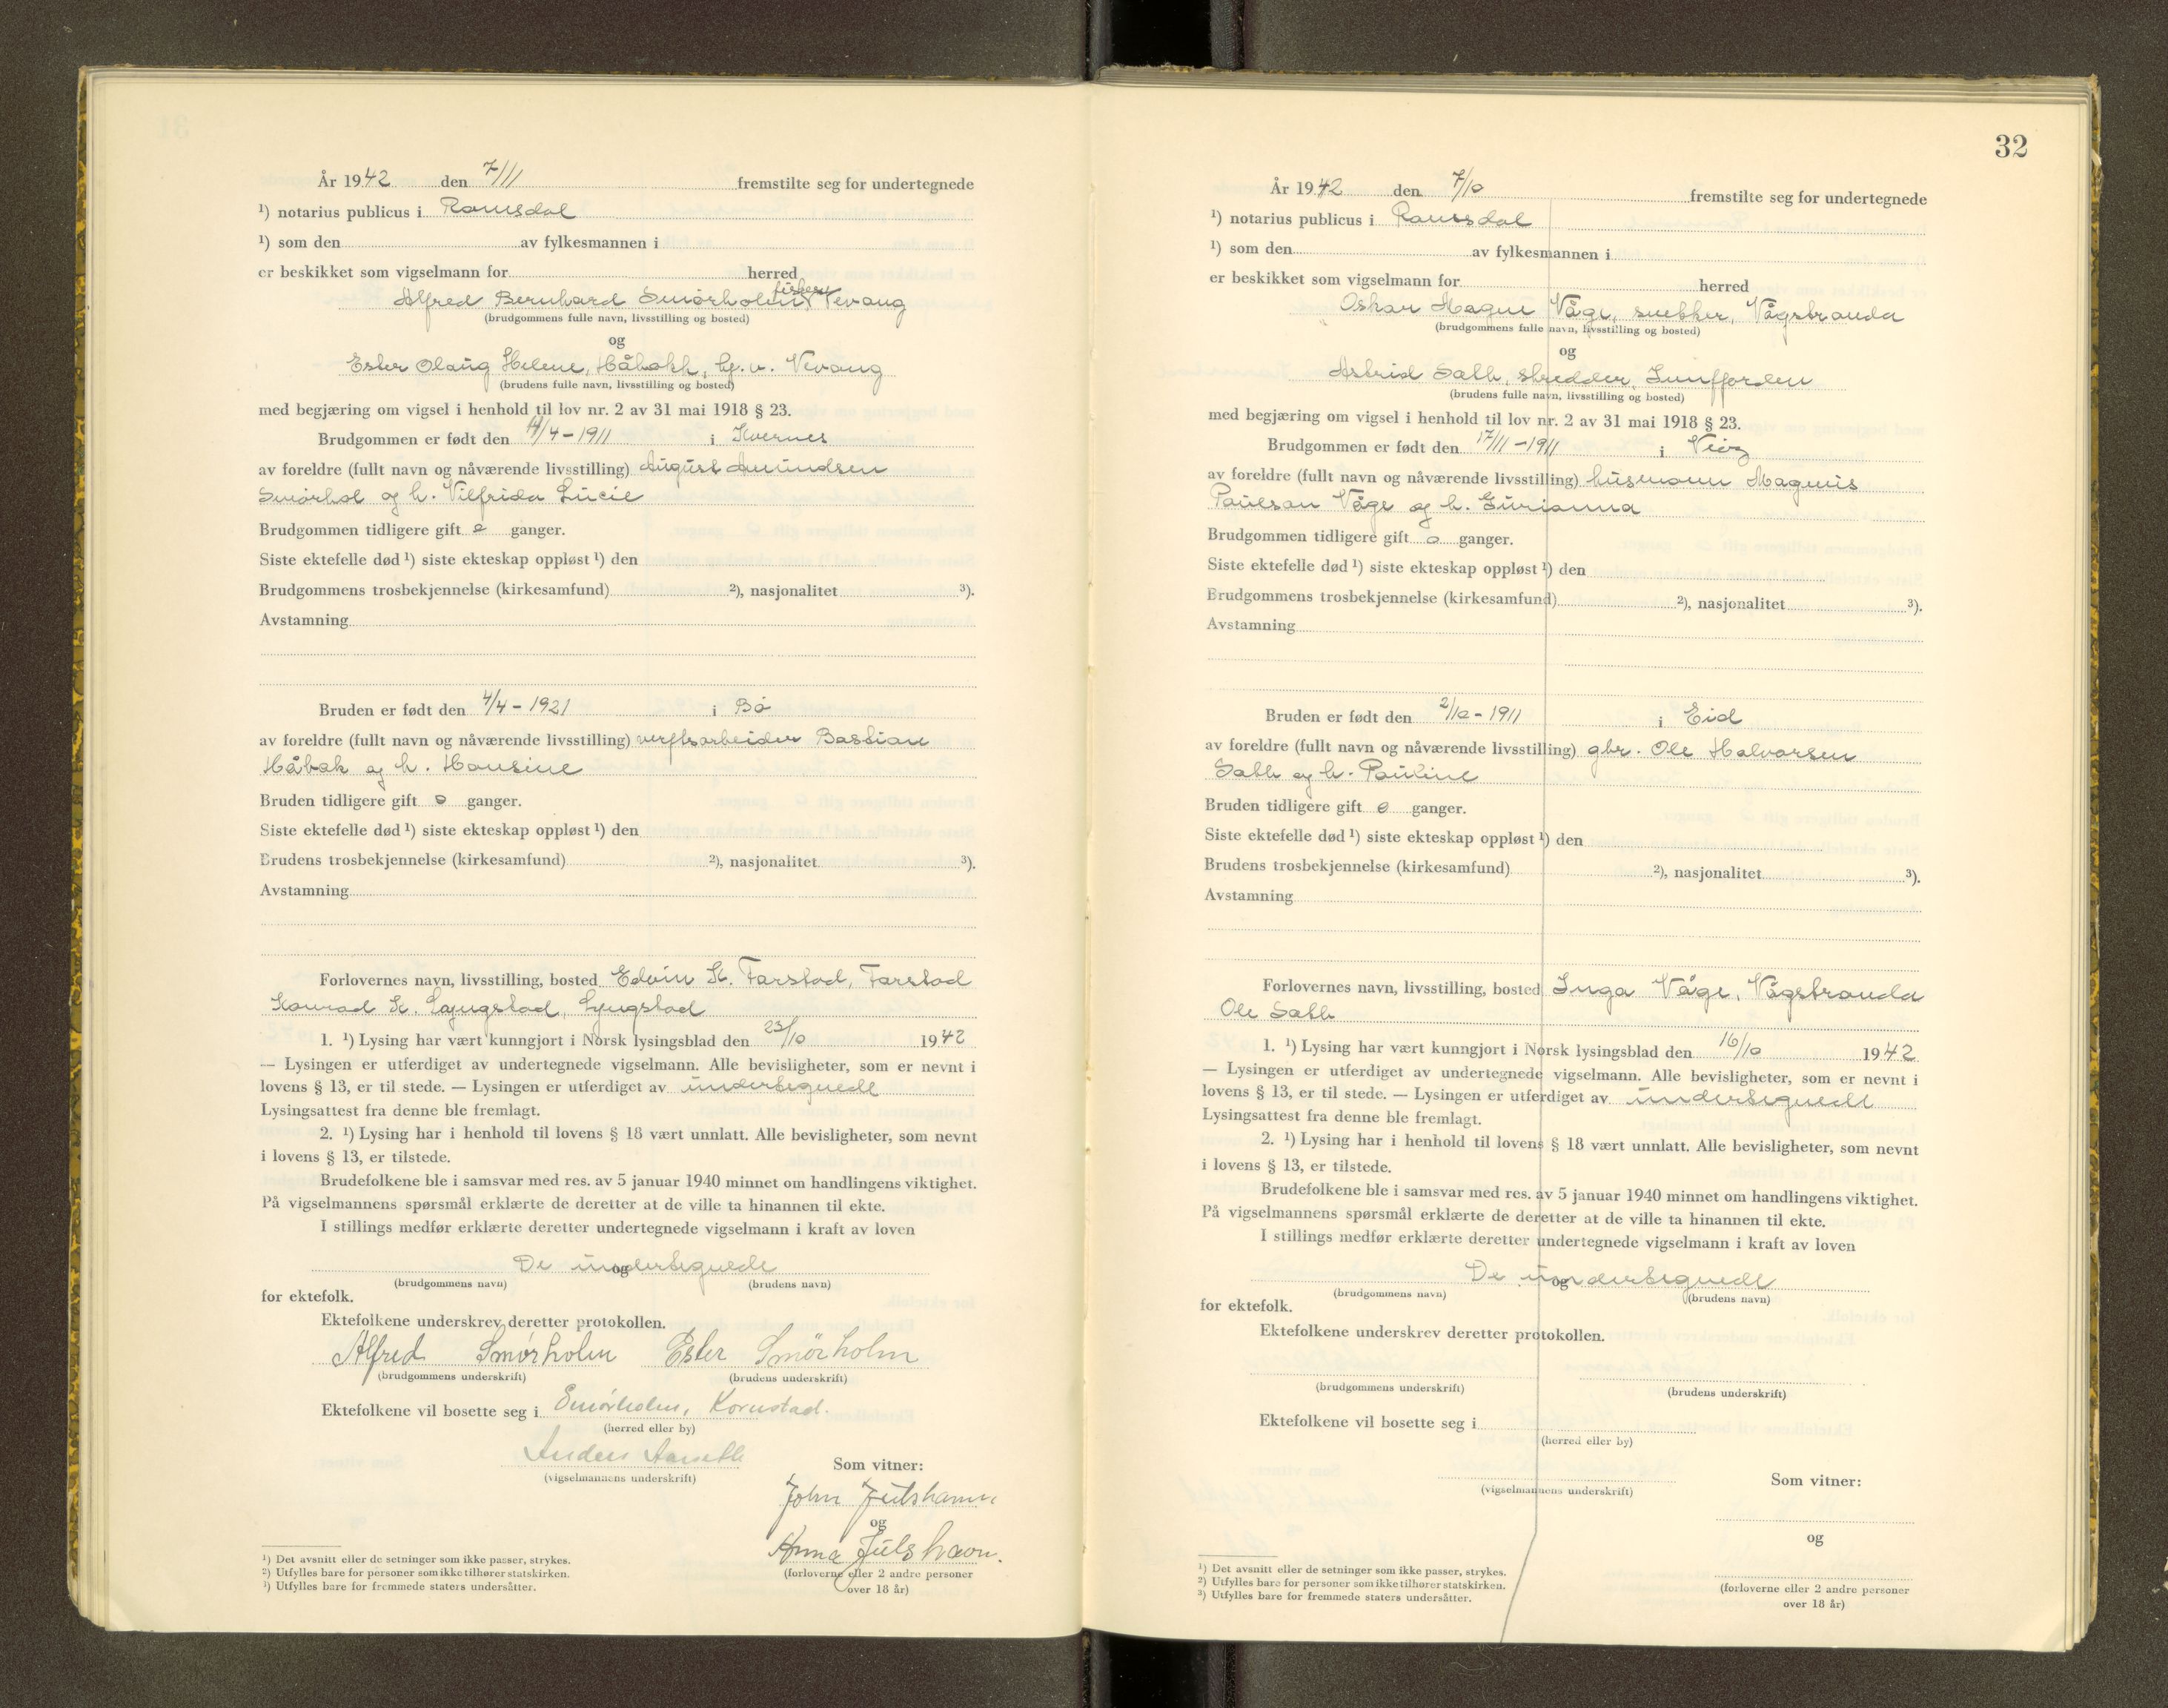 År 1942 den 7/11 fremstilte seg for undertegnede
¹) notarius publicus i Romsdal
¹) som den av fylkesmannen i
er beskikket som vigselmann for herred
fisker
Alfred Bernhard Smørholm, Vevang
(brudgommens fulle navn, livsstilling og bosted)
og
Ester Olaug Helene, Håbakk, hj. v. Vevang
(brudens fulle navn, livsstilling og bosted)
med begjæring om vigsel i henhold til lov nr. 2 av 31 mai 1918 § 23.
Brudgommen er født den 14/4 - 1911 i Kvernes
av foreldre (fullt navn og nåværende livsstilling) August Amundsen
Smørhol og h. Vilfrida Lucie
Brudgommen tidligere gift 0 ganger.
Siste ektefelle død ¹) siste ekteskap oppløst ¹) den
Brudgommens trosbekjennelse (kirkesamfund) ²), nasjonalitet ³).
Avstamning
Bruden er født den 4/4 - 1921 i Bø
av foreldre (fullt navn og nåværende livsstilling) verftsarbeider Bastian
Håbak og h. Hansine
Bruden tidligere gift 0 ganger.
Siste ektefelle død ¹) siste ekteskap oppløst ¹) den
Brudens trosbekjennelse (kirkesamfund) ²), nasjonalitet ³).
Avstamning
Forlovernes navn, livsstilling, bosted Edvin K. Farstad, Farstad
Konrad K. Lyngstad, Lyngstad
1. ¹) Lysing har vært kunngjort i Norsk lysingsblad den 23/10 1942
— Lysingen er utferdiget av undertegnede vigselmann. Alle bevisligheter, som er nevnt i
lovens § 13, er til stede. — Lysingen er utferdiget av undertegnede
Lysingsattest fra denne ble fremlagt.
2. ¹) Lysing har i henhold til lovens § 18 vært unnlatt. Alle bevisligheter, som nevnt
i lovens § 13, er tilstede.
Brudefolkene ble i samsvar med res. av 5 januar 1940 minnet om handlingens viktighet.
På vigselmannens spørsmål erklærte de deretter at de ville ta hinannen til ekte.
I stillings medfør erklærte deretter undertegnede vigselmann i kraft av loven
De undertegnede
og
(brudgommens navn) (brudens navn)
for ektefolk.
Ektefolkene underskrev deretter protokollen.
Alfred Smørholm Ester Smörholm
(brudgommens underskrift) (brudens underskrift)
Ektefolkene vil bosette seg i Smørholm, Kornstad.
(herred eller by)
Anders
(vigselmannens underskrift)
Som vitner:
John Julshamn
og
Anna Julshavn.
(forloverne eller 2 andre personer
over 18 år)
¹) Det avsnitt eller de setninger som ikke passer, strykes.
²) Utfylles bare for personer som ikke tilhører statskirken.
³) Utfylles bare for fremmede staters undersåtter.
32
År 1942 den 7/10 fremstilte seg for undertegnede
¹) notarius publicus i Romsdal
¹) som den av fylkesmannen i
er beskikket som vigselmann for herred
Oskar Magne Våge, snekker, Vågstranda
(brudgommens fulle navn, livsstilling og bosted)
og
Astrid Sæth, skredder, Innfjorden
(brudens fulle navn, livsstilling og bosted)
med begjæring om vigsel i henhold til lov nr. 2 av 31 mai 1918 § 23.
Brudgommen er født den 17/11 - 1911 i Veøy
av foreldre (fullt navn og nåværende livsstilling) husmann Magnus
Paulson Våge og h. Gurianna
Brudgommen tidligere gift 0 ganger.
Siste ektefelle død ¹) siste ekteskap oppløst ¹) den
Brudgommens trosbekjennelse (kirkesamfund) ²), nasjonalitet ³).
Avstamning
Bruden er født den 2/10 - 1911 i Eid
av foreldre (fullt navn og nåværende livsstilling) gbr. Ole Halvorsen
Sæth og h. Pauline
Bruden tidligere gift 0 ganger.
Siste ektefelle død ¹) siste ekteskap oppløst ¹) den
Brudens trosbekjennelse (kirkesamfund) ²), nasjonalitet ³).
Avstamning
Forlovernes navn, livsstilling, bosted Inga Våge, Vågstranda
Ole Sæth
1. ¹) Lysing har vært kunngjort i Norsk lysingsblad den 16/10 1942
— Lysingen er utferdiget av undertegnede vigselmann. Alle bevisligheter, som er nevnt i
lovens § 13, er til stede. — Lysingen er utferdiget av undertegnede
Lysingsattest fra denne ble fremlagt.
2. ¹) Lysing har i henhold til lovens § 18 vært unnlatt. Alle bevisligheter, som nevnt
i lovens § 13, er tilstede.
Brudefolkene ble i samsvar med res. av 5 januar 1940 minnet om handlingens viktighet.
På vigselmannens spørsmål erklærte de deretter at de ville ta hinannen til ekte.
I stillings medfør erklærte deretter undertegnede vigselmann i kraft av loven
De undertegnede
og
(brudgommens navn) (brudens navn)
for ektefolk.
Ektefolkene underskrev deretter protokollen.
(brudgommens underskrift) (brudens underskrift)
Ektefolkene vil bosette seg i
(herred eller by)
(vigselmannens underskrift)
Som vitner:
og
(forloverne eller 2 andre personer
over 18 år)
¹) Det avsnitt eller de setninger som ikke passer, strykes.
²) Utfylles bare for personer som ikke tilhører statskirken.
³) Utfylles bare for fremmede staters undersåtter.